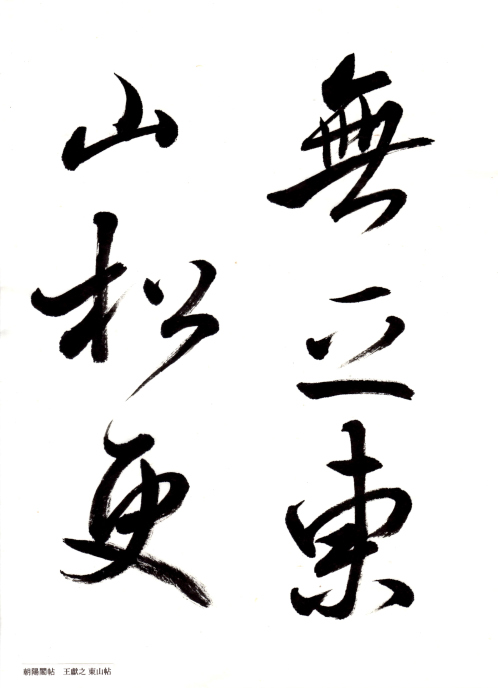 無乏東
山松更
朝陽閣帖　王獻之 東山帖